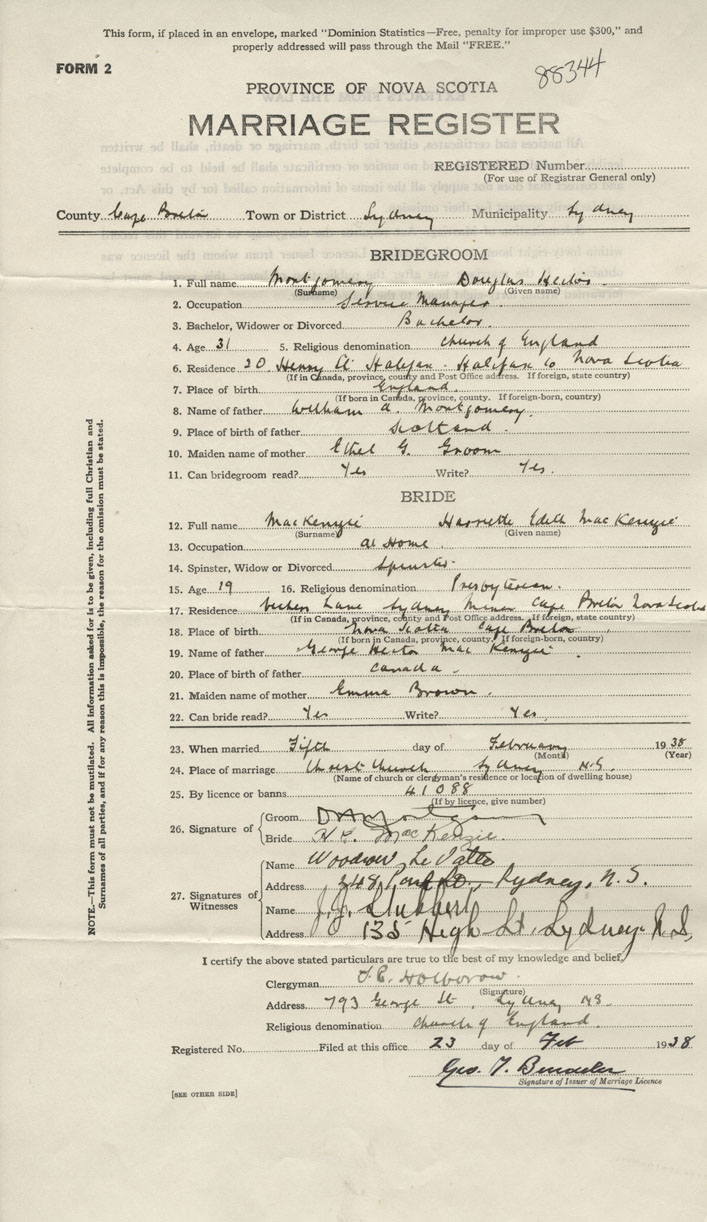 This form, if placed in an envelope, marked "Dominion Statistics—Free, penalty for improper use $300," and
properly addressed will pass through the Mail "FREE."
FORM 2
88344
PROVINCE OF NOVA SCOTIA
MARRIAGE REGISTER
REGISTERED Number
(For use of Registrar General only)
County Cape Breton Town or District Sydney Municipality Sydney
BRIDEGROOM
1. Full name Montgomery Douglas Hector
(Surname) (Given name)
2. Occupation Service Manager
3. Bachelor, Widower or Divorced Bachelor
4. Age 31 5. Religious denomination Church of England
6. Residence 20 Henry St Halifax Halifax Co Nova Scotia
(If in Canada, province, county and Post Office address. If foreign, state country)
7. Place of birth England
(If born in Canada, province, county. If foreign-born, country)
8. Name of father William A. Montgomery
9. Place of birth of father Scotland
10. Maiden name of mother Ethel G. Groom
11. Can bridegroom read? Yes Write? Yes
BRIDE
12. Full name MacKenzie Harriette Edith MacKenzie
(Surname) (Given name)
13. Occupation at Home
14. Spinster, Widow or Divorced Spinster
15. Age 19 16. Religious denomination Presbyterian
17. Residence Lane Sydney Mines Cape Breton Nova Scotia
(If in Canada, province, county and Post Office address. If foreign, state country)
18. Place of birth Nova Scotia Cape Breton
(If born in Canada, province, county. If foreign-born, country)
19. Name of father George Hector Mac Kenzie
20. Place of birth of father Canada
21. Maiden name of mother Emma Brown
22. Can bride read? Yes Write? Yes
23. When married Fifth day of February 1938
(Month) (Year)
24. Place of marriage Christ Church Sydney N.S.
(Name of church or clergyman's residence or location of dwelling house)
25. By licence or banns 41088
(If by licence, give number)
26. Signature of
Groom D H Montgomery
Bride H.E. MacKenzie
27. Signatures of Witnesses
Name Woodrow Le Vatte
Address 348 Sydney, N.S.
Name J.J.
Address 135 High St. Sydney N.S.
I certify the above stated particulars are true to the best of my knowledge and belief.
Clergyman Holborow
(Signature)
Address 793 George St, Sydney NS
Religious denomination Church of England
Registered No. Filed at this office 23 day of Feb 1938
Geo. T.
Signature of Issuer of Marriage Licence
[SEE OTHER SIDE]
NOTE.—This form must not be mutilated. All information asked for is to be given, including full Christian and
Surnames of all parties, and if for any reason this is impossible, the reason for the omission must be stated.